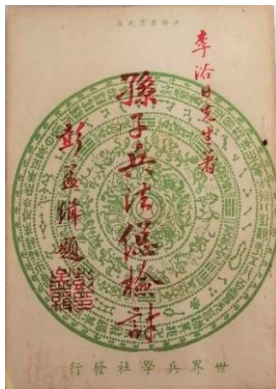 李浴日先生著
孫子兵法總檢討
彭孟緝題
世界兵學社發行